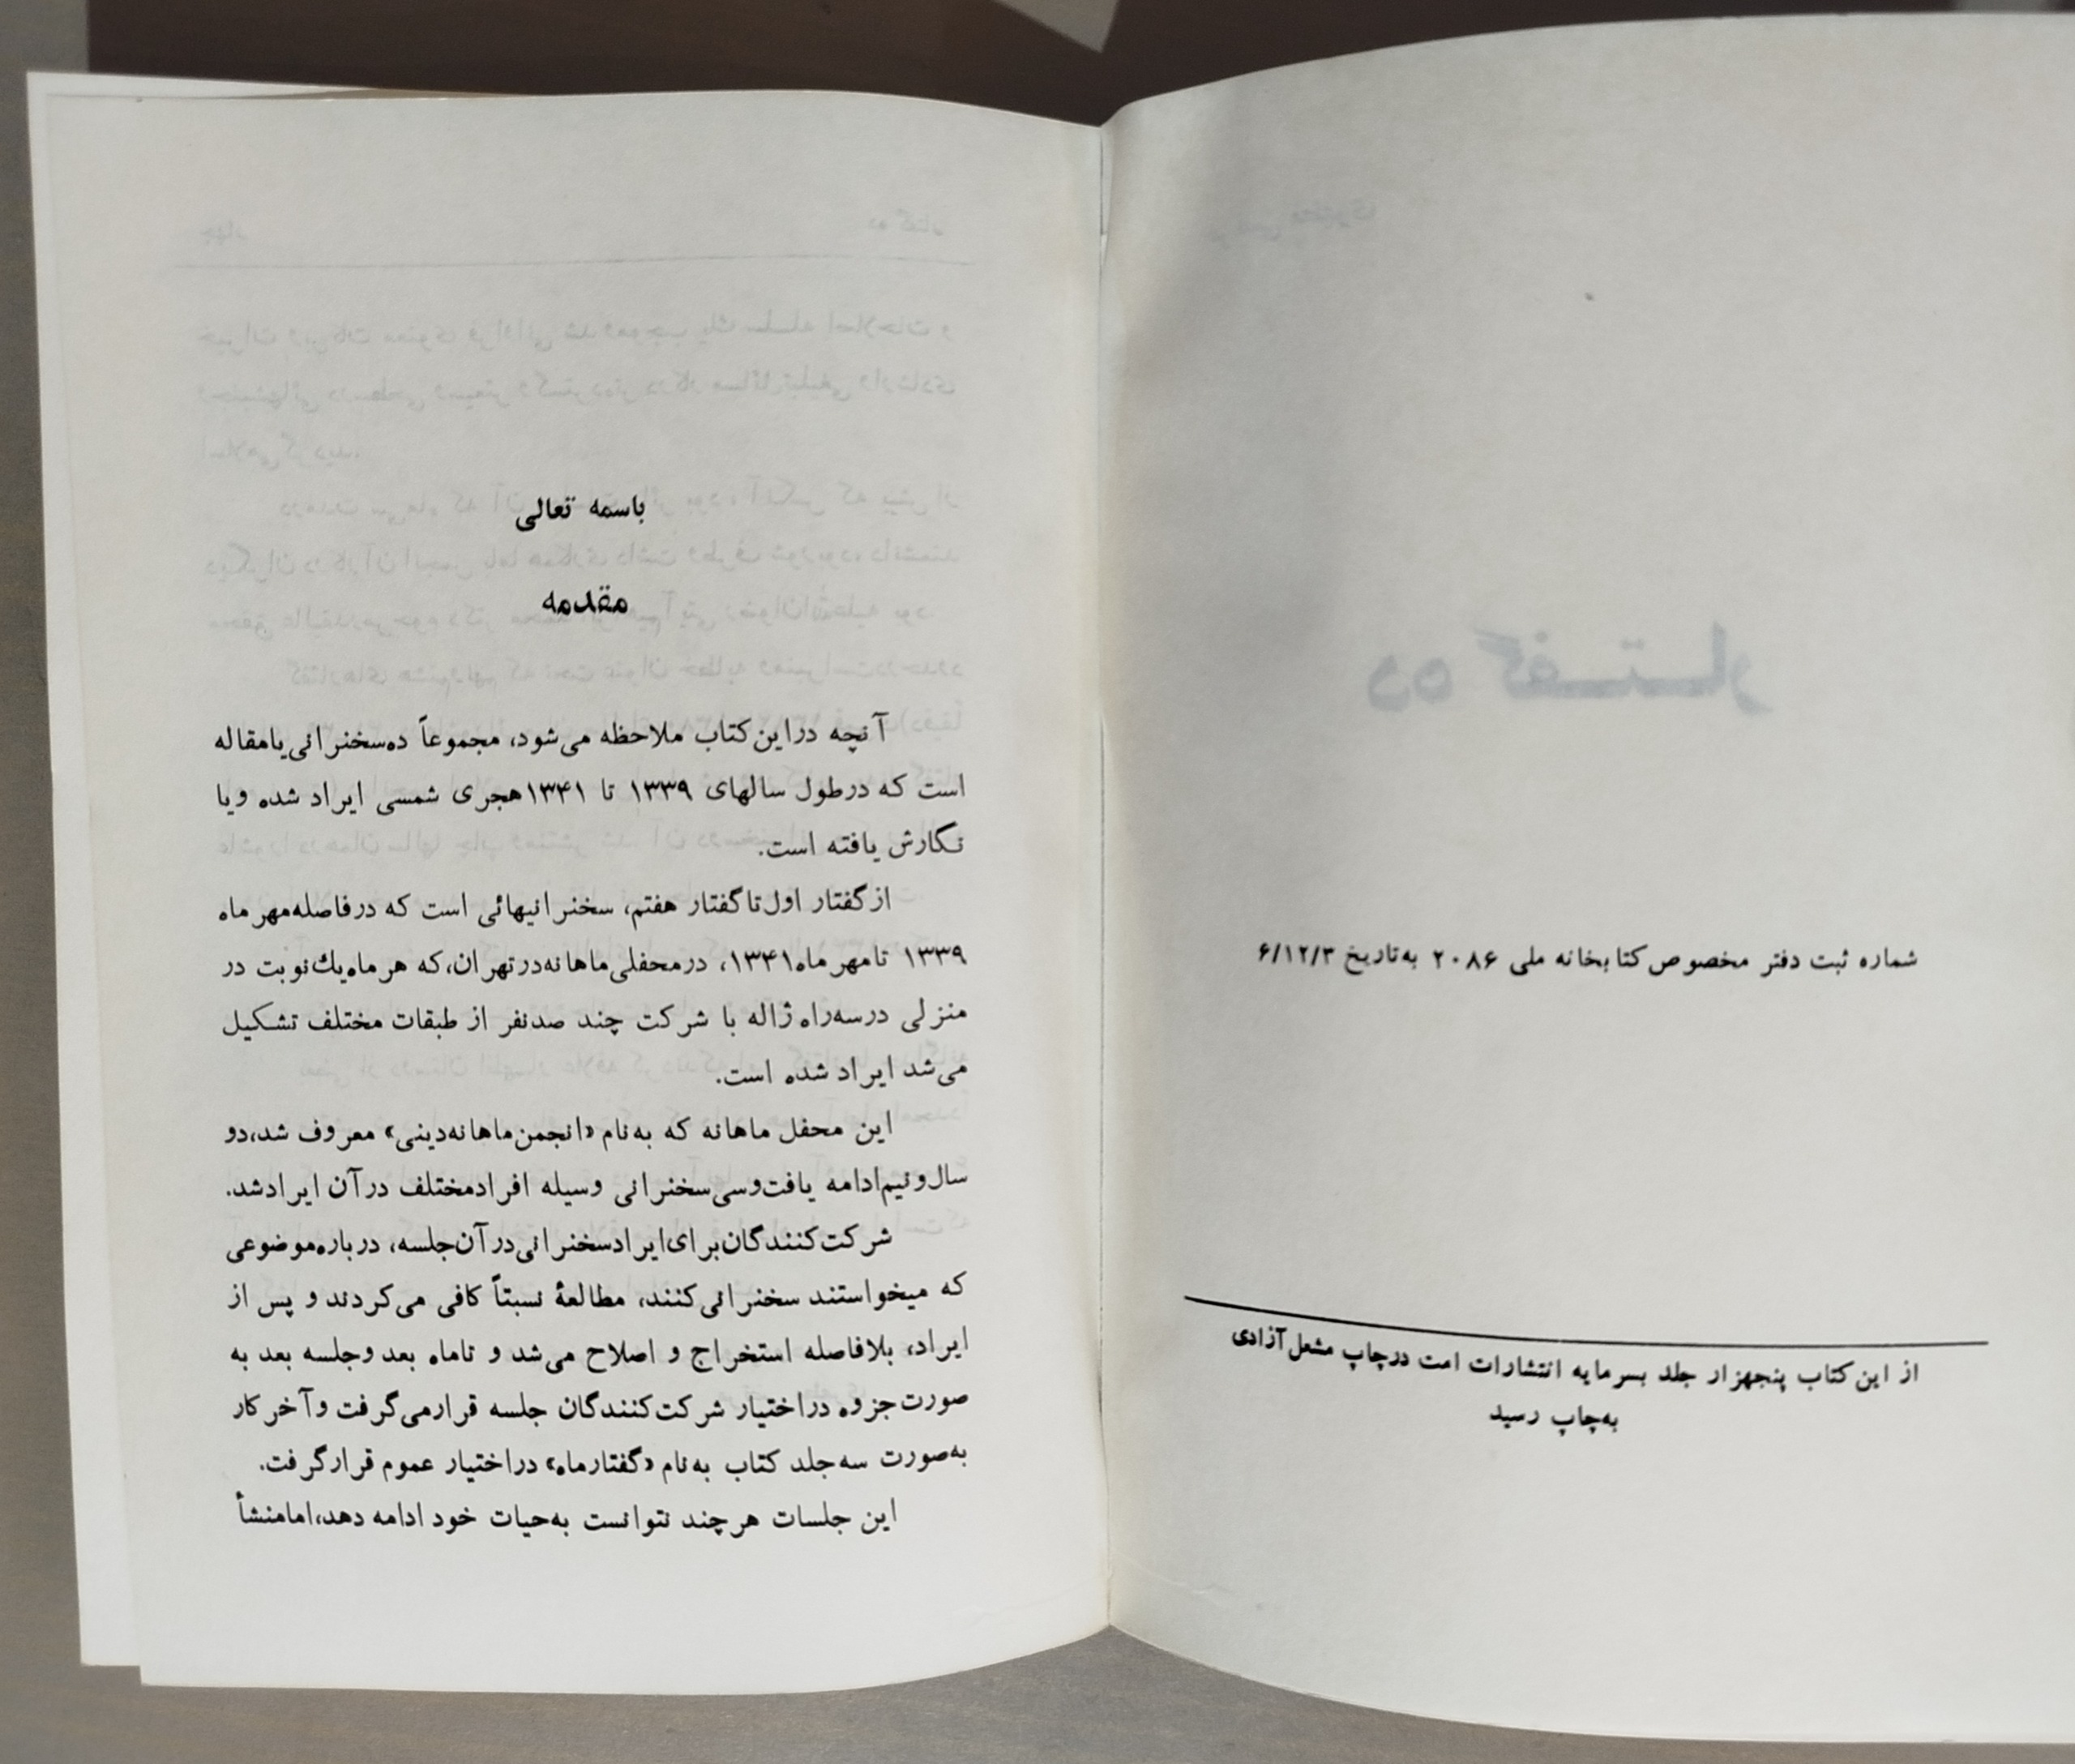 شماره ثبت دفتر مخصوص کتابخانه ملی ۲۰۸۶ به‌تاریخ ۶/۱۲/۳
از این کتاب پنجهزار جلد بسرمایه انتشارات امت درچاپ مشعل آزادی
به‌چاپ رسید
باسمه تعالی
مقدمه
آنچه دراین کتاب ملاحظه می‌شود، مجموعاً ده‌سخنرانی‌یامقاله
است که درطول سالهای ۱۳۳۹ تا ۱۳۴۱هجری شمسی ایراد شده ویا
نگارش یافته است.
ازگفتار اول‌تاگفتار هفتم، سخنرانیهائی است که درفاصله‌مهرماه
۱۳۳۹ تامهرماه۱۳۴۱، درمحفلی‌ماهانه‌درتهران،که هرماه‌یك‌نوبت در
منزلی درسه‌راه ژاله با شرکت چند صدنفر از طبقات مختلف تشکیل
می‌شد ایراد شده است.
این محفل ماهانه که به‌نام «انجمن‌ماهانه‌دینی» معروف شد،دو
سال‌ونیم‌ادامه یافت‌وسی‌سخنرانی وسیله افرادمختلف درآن ایرادشد.
شرکت‌کنندگان‌برای‌ایرادسخنرانی‌درآن‌جلسه، درباره‌موضوعی
که میخواستند سخنرانی‌کنند، مطالعهٔ نسبتاً کافی می‌کردند و پس از
ایراد، بلافاصله استخراج و اصلاح می‌شد و تاماه بعد وجلسه بعد به
صورت‌جزوه دراختیار شرکت‌کنندگان جلسه قرارمی‌گرفت وآخرکار
به‌صورت سه‌جلد کتاب به‌نام «گفتارماه» دراختیار عموم قرارگرفت.
این جلسات هرچند نتوانست به‌حیات خود ادامه دهد،امامنشأ